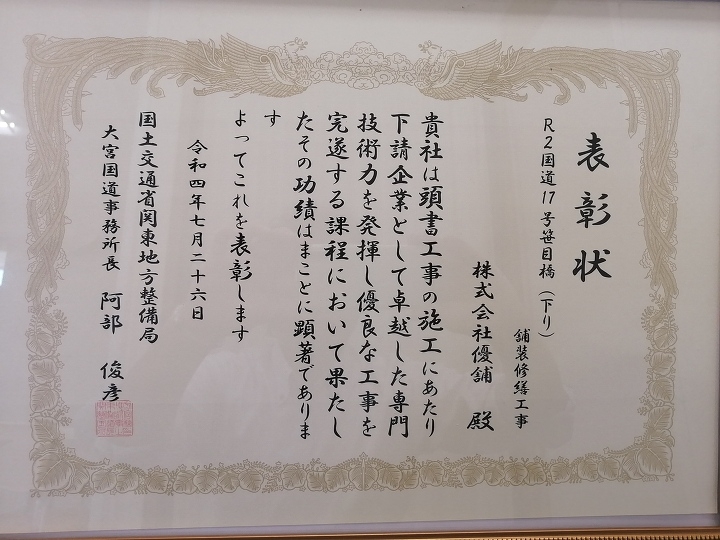 表彰状
R2国道17号笹目橋(下り)
舗装修繕工事
株式会社優舗 殿
貴社は頭書工事の施工にあたり
下請企業として卓越した専門
技術力を発揮し優良な工事を
完遂する課程において果たし
たその功績はまことに顕著でありま
す
よってこれを表彰します
令和四年七月二十六日
国土交通省関東地方整備局
大宮国道事務所長 阿部 俊彦